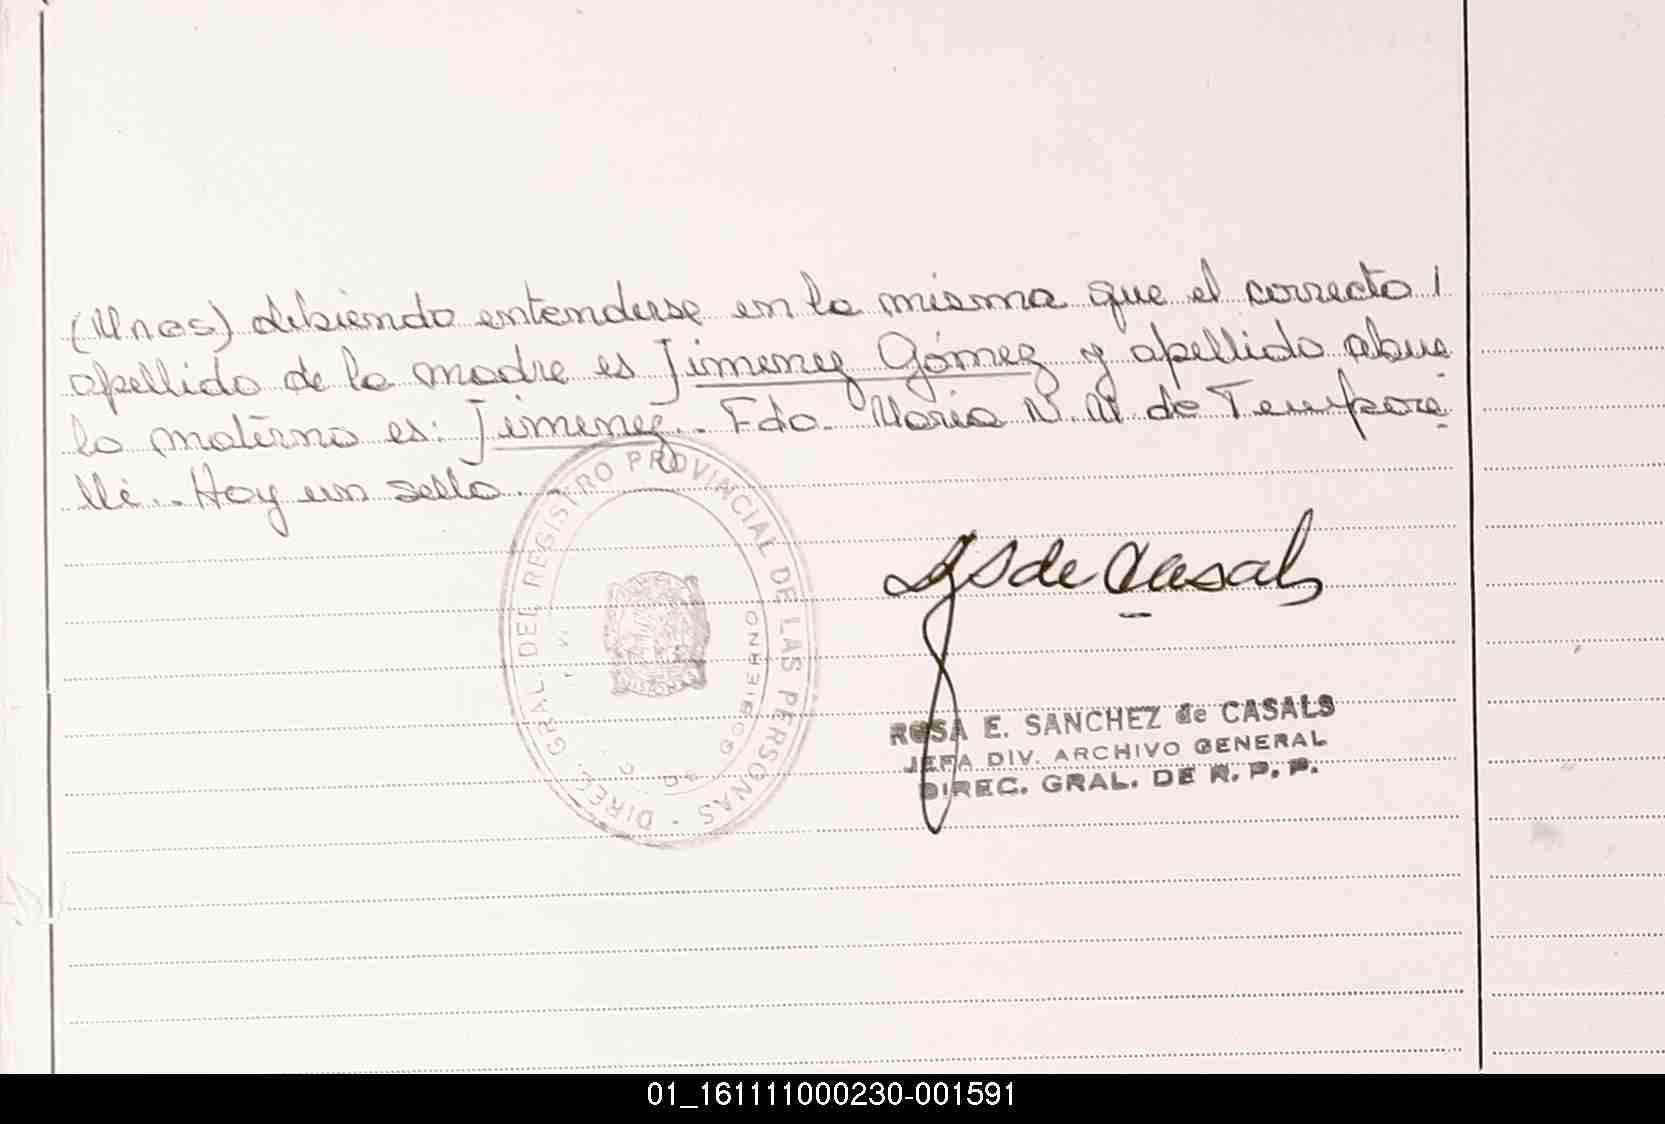 (Mnes) debiendo entenderse en la misma que el correcto /
apellido de la madre es Jimenez Gómez y apellido abue
lo materno es: Jimenez.. Fdo. Maria N. M de Tempore
lli.. Hay un sello.
DIREC. GRAL. DEL REGISTRO PROVINCIAL DE LAS PERSONAS
DE GOBIERNO
S de Casals
ROSA E. SANCHEZ de CASALS
JEFA DIV. ARCHIVO GENERAL
DIREC. GRAL. DE R. P. P.
01_161111000230-001591